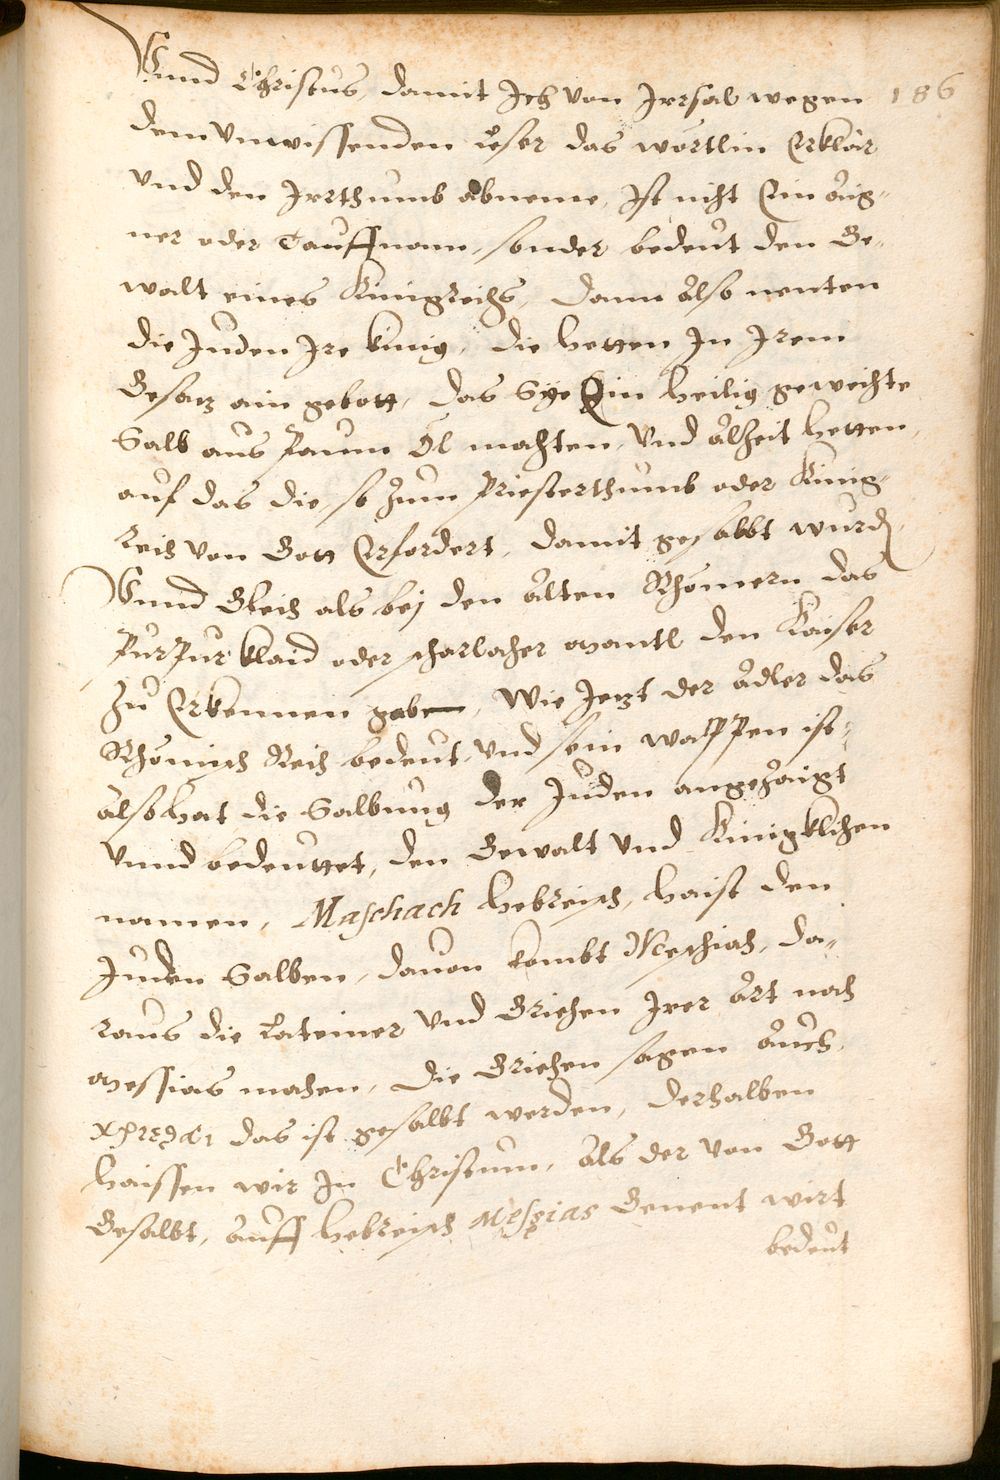 Vnnd Christus, damit Ich von Irrsal wegen 186
dem vnwissenden Leser das wörtlin Erklär
vnd den Irrthumb abneme, Ist nicht Ein aig-
ner oder Tauffnam, sonder bedeut den Ge-
walt eines Künigreichs, dann also nenten
die Juden Ire künig, die hetten In Irem
Gesatz ain gebott, das Sye Ein heilig geweichte
Salb aus Paum Öl machten, vnd alzeit hetten,
auf das die so zum Priesterthumb oder Künig-
reich von Gott Erfordert, damit gesalbt wurdn,
Vnnd Gleich als bej den alten Rhömern das
Purpur klaid oder scharlacher mantl den Kaiser
zu Erkennen gaben, Wie Jetzt der adler das
Rhömisch Reich bedeut, vnd sein wappen ist,
also hat die Salbung der Juden angezaigt
vnnd bedeuttet, den Gewalt vnd Künigklichen
namen, Maschach hebreisch, haist den
Juden Salben, dauon kombt Meschiach, da-
raus die Lateiner vnd Griechen Irer art nach
Messias machen, die Griechen sagen auch,
das ist gesalbt werden, derhalben
haissen wir In Christum, als der von Gott
Gesalbt, auff hebreisch Messias Genent wirt
bedeut